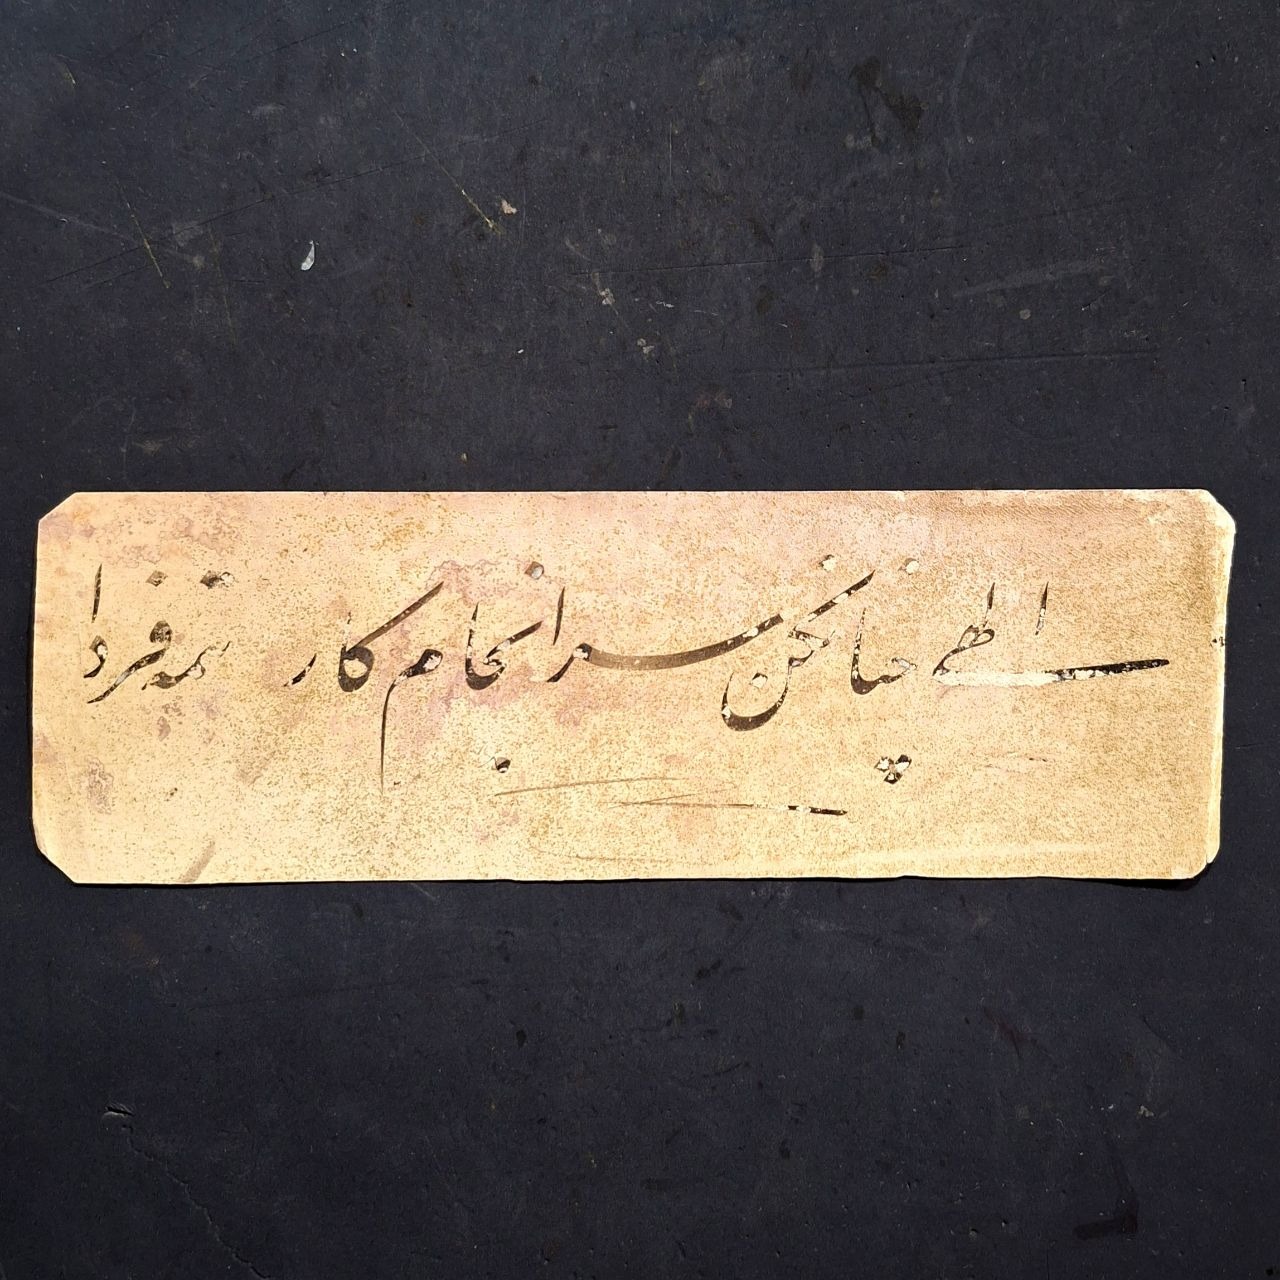 الهی چنان کن سرانجام کار تتمه فردا